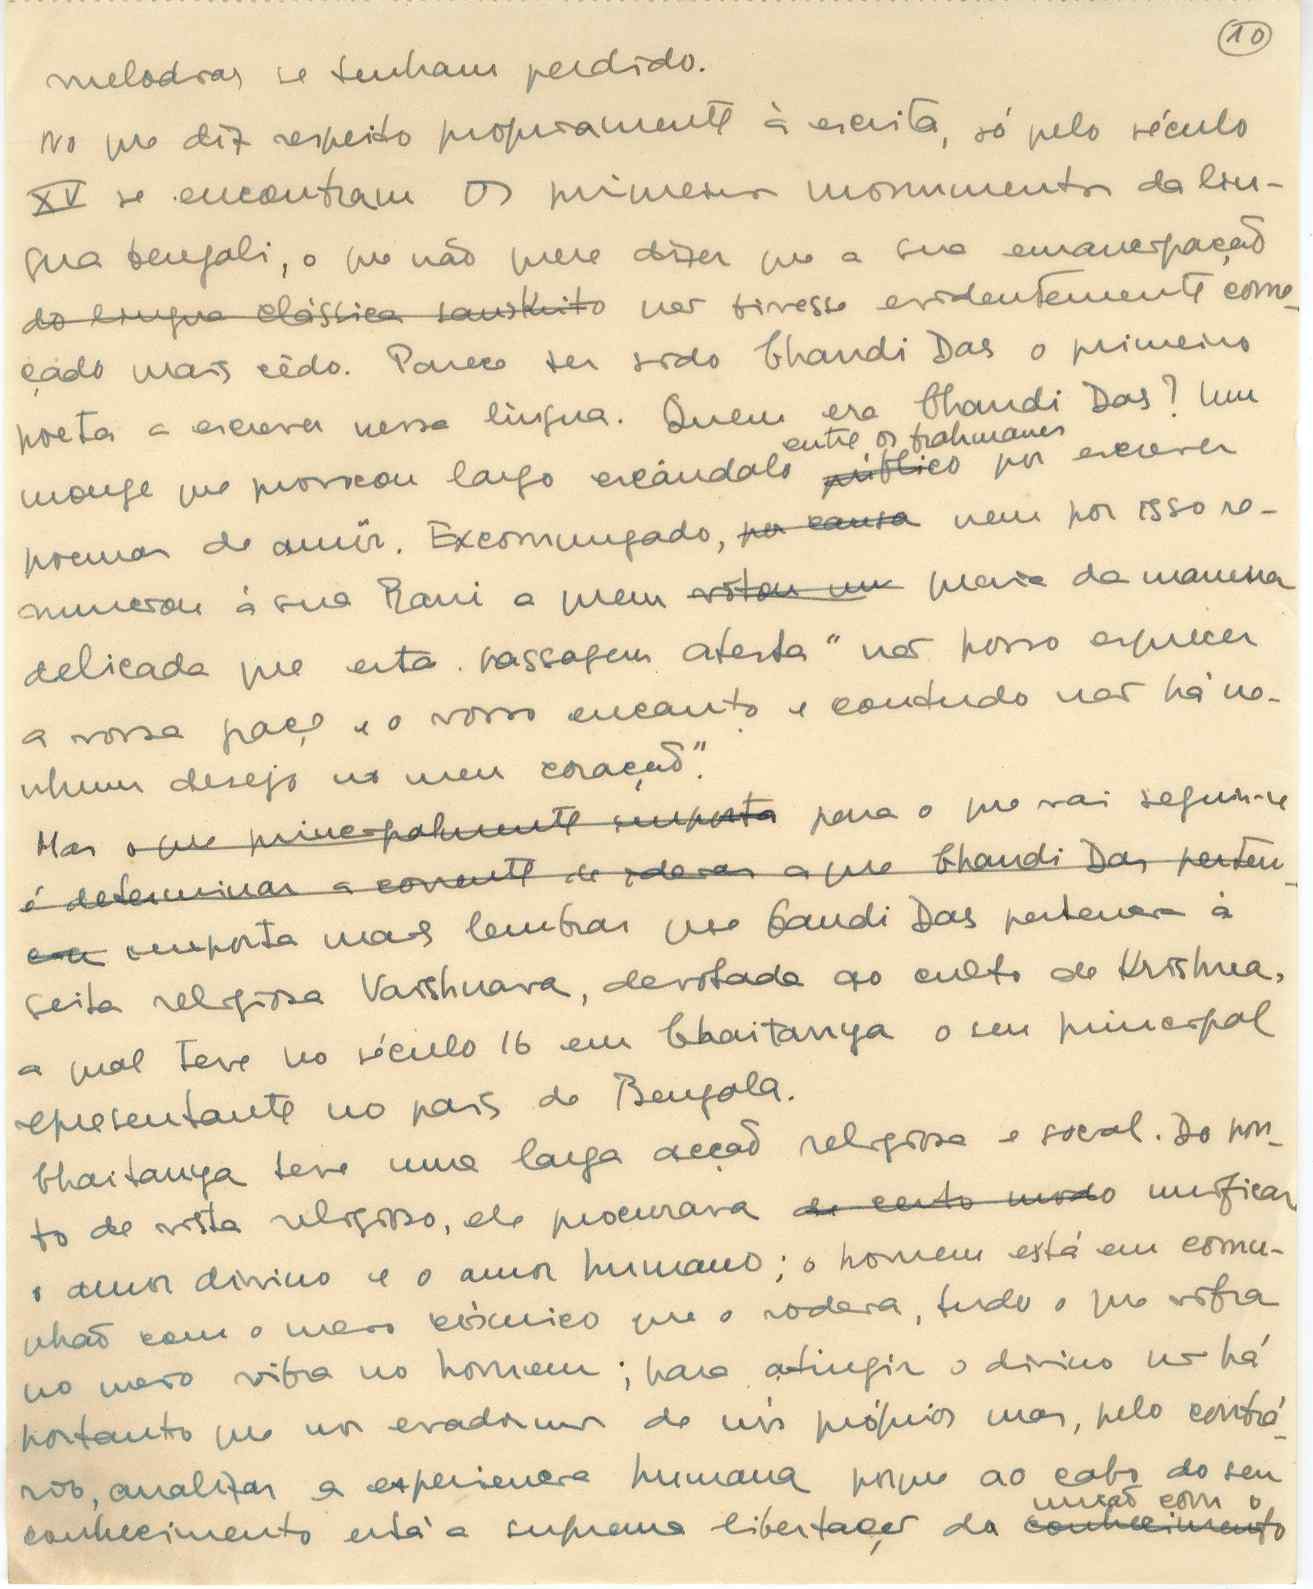 10
melodias se tenham perdido.
No que diz respeito propriamente à escrita, só pelo século
XV se encontram os primeiros monumentos da lín-
gua bengali, o que não quere dizer que a sua emancipação
do lingua clássica sanskrito não tivesse evidentemente come-
çado mais cêdo. Parece ter sido Chandi Das o primeiro
poeta a escrever nessa lingua. Quem era Chandi Das? Um
entre os brahmanes
monge que provocou largo escândalo público por escrever
poemas de amôr. Excomungado, por causa nem por isso re-
nunciou à sua Rani a quem votou um queria da maneira
delicada que esta passagem atesta "não posso esquecer
a vossa graça e o vosso encanto e contudo não há ne-
nhum desejo no meu coração".
Mas o que principalmente importa para o que vai seguir-se
é determinar a corrente de ideias a que Chandi Das perten-
ceu importa mais lembrar que Candi Das pertencia à
seita religiosa Vaishnava, devotada ao culto de Krishna,
a qual teve no século 16 em Chaitanya o seu principal
representante no país de Bengala.
Chaitanya teve uma larga acção religiosa e social. Do pon-
to de vista religioso, ele procurava de certo modo unificar
o amor divino e o amor humano; o homem está em comu-
nhão com o meio cósmico que o rodeia, tudo o que vibra
no meio vibra no homem; para atingir o divino não há
portanto que nos evadirmos de nós próprios mas, pelo contrá-
rio, analizar a experiencia humana porque ao cabo do seu
união com o
conhecimento está a suprema libertação da conhecimento